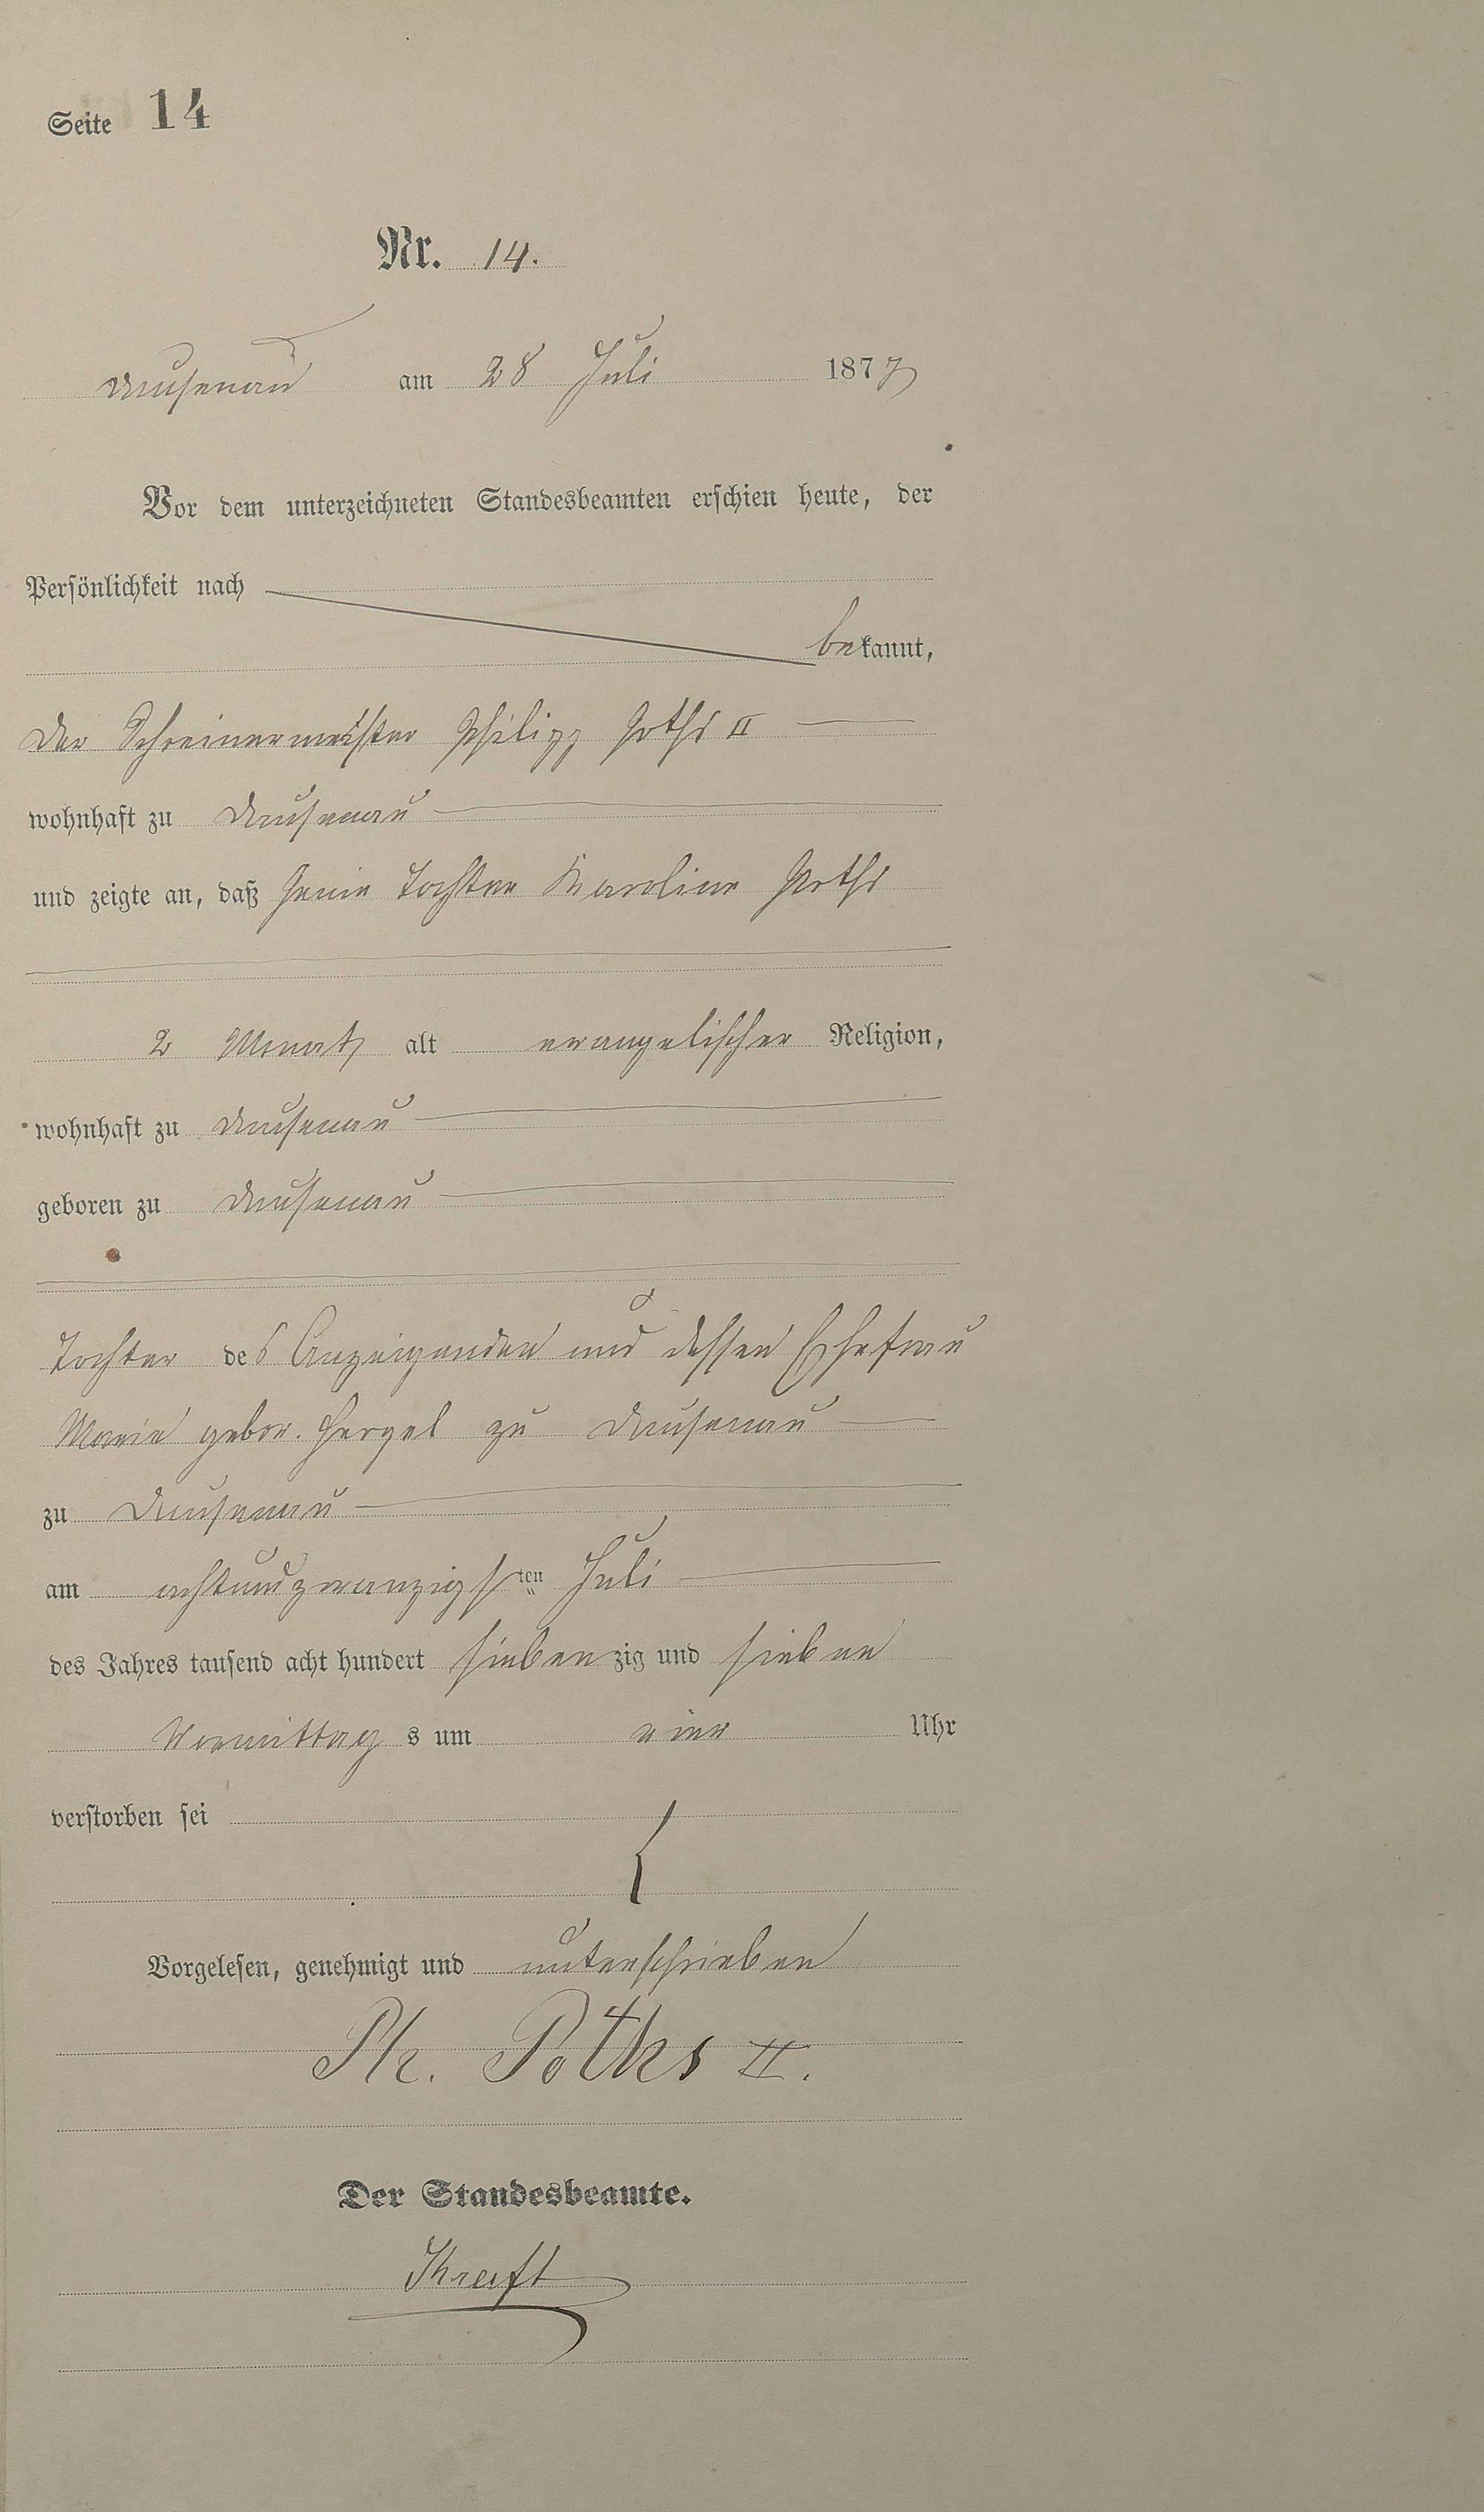 Seite 14
Nr. 14.
Dausenau am 28 Juli 1877
Vor dem unterzeichneten Standesbeamten erschien heute, der
Persönlichkeit nach
bekannt,
der Schreinermeister Philipp Poths II
wohnhaft zu Dausenau
und zeigte an, daß seine Tochter Karoline Poths
2 Monat alt evangelischer Religion,
wohnhaft zu Dausenau
geboren zu Dausenau
Tochter des Anzeigenden und dessen Ehefrau
Marie gebor. zu Dausenau
zu Dausenau
am achtundzwanzigsten Juli
des Jahres tausend acht hundert siebenzig und sieben
Vormittags um eins Uhr
verstorben sei
Vorgelesen, genehmigt und unterschrieben
Ph. Poths II.
Der Standesbeamte.
Kraft